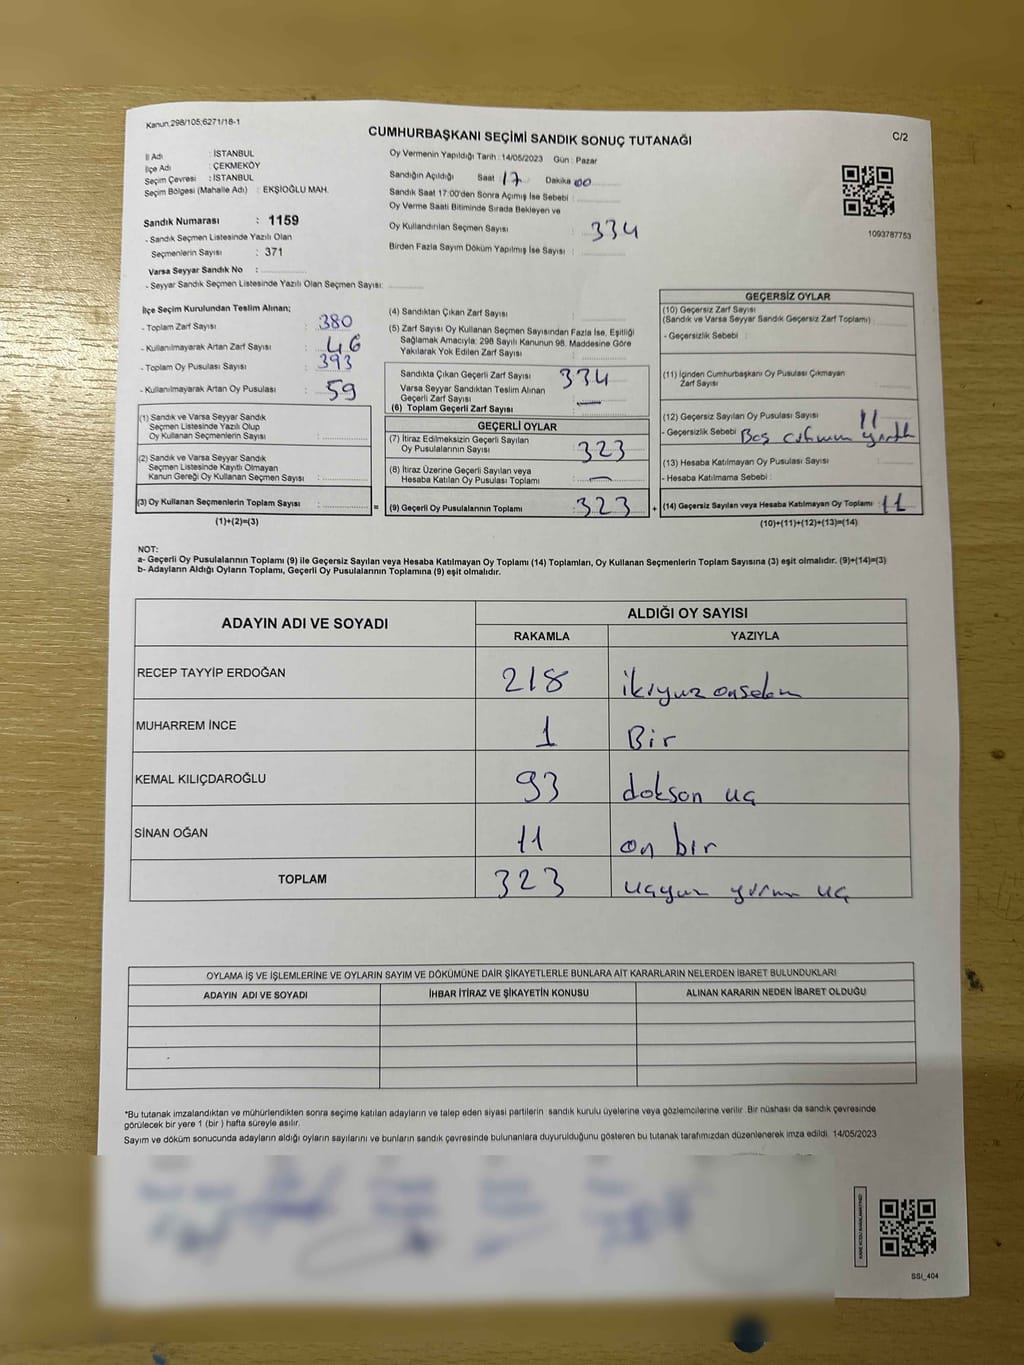 Kanun:298/105;6271/18-1
CUMHURBAŞKANI SEÇİMİ SANDIK SONUÇ TUTANAĞI
C/2
İl Adı : İSTANBUL
İlçe Adı : ÇEKMEKÖY
Seçim Çevresi : İSTANBUL
Seçim Bölgesi (Mahalle Adı) : EKŞİOĞLU MAH.
Sandık Numarası : 1159
- Sandık Seçmen Listesinde Yazılı Olan
Seçmenlerin Sayısı : 371
Varsa Seyyar Sandık No :
- Seyyar Sandık Seçmen Listesinde Yazılı Olan Seçmen Sayısı:
Oy Vermenin Yapıldığı Tarih : 14/05/2023 Gün : Pazar
Sandığın Açıldığı Saat 17 Dakika 00
Sandık Saat 17:00'den Sonra Açımış İse Sebebi :
Oy Verme Saati Bitiminde Sırada Bekleyen ve
Oy Kullandırılan Seçmen Sayısı : 334
Birden Fazla Sayım Döküm Yapılmış İse Sayısı :
1093787753
İlçe Seçim Kurulundan Teslim Alınan;
- Toplam Zarf Sayısı : 380
- Kullanılmayarak Artan Zarf Sayısı : 46
- Toplam Oy Pusulası Sayısı : 393
- Kullanılmayarak Artan Oy Pusulası : 59
(1) Sandık ve Varsa Seyyar Sandık
Seçmen Listesinde Yazılı Olup
Oy Kullanan Seçmenlerin Sayısı :
(2) Sandık ve Varsa Seyyar Sandık
Seçmen Listesinde Kayıtlı Olmayan
Kanun Gereği Oy Kullanan Seçmen Sayısı :
(3) Oy Kullanan Seçmenlerin Toplam Sayısı :
(1)+(2)=(3)
=
(4) Sandıktan Çıkan Zarf Sayısı :
(5) Zarf Sayısı Oy Kullanan Seçmen Sayısından Fazla İse, Eşitliği
Sağlamak Amacıyla; 298 Sayılı Kanunun 98. Maddesine Göre
Yakılarak Yok Edilen Zarf Sayısı :
Sandıkta Çıkan Geçerli Zarf Sayısı : 334
Varsa Seyyar Sandıktan Teslim Alınan
Geçerli Zarf Sayısı : —
(6) Toplam Geçerli Zarf Sayısı :
GEÇERLİ OYLAR
(7) İtiraz Edilmeksizin Geçerli Sayılan
Oy Pusulalarının Sayısı : 323
(8) İtiraz Üzerine Geçerli Sayılan veya
Hesaba Katılan Oy Pusulası Toplamı : —
(9) Geçerli Oy Pusulalarının Toplamı : 323
+
GEÇERSİZ OYLAR
(10) Geçersiz Zarf Sayısı
(Sandık ve Varsa Seyyar Sandık Geçersiz Zarf Toplamı) :
- Geçersizlik Sebebi :
(11) İçinden Cumhurbaşkanı Oy Pusulası Çıkmayan
Zarf Sayısı :
(12) Geçersiz Sayılan Oy Pusulası Sayısı : 11
- Geçersizlik Sebebi : Boş
(13) Hesaba Katılmayan Oy Pusulası Sayısı :
- Hesaba Katılmama Sebebi :
(14) Geçersiz Sayılan veya Hesaba Katılmayan Oy Toplamı : 11
(10)+(11)+(12)+(13)=(14)
NOT:
a- Geçerli Oy Pusulalarının Toplamı (9) ile Geçersiz Sayılan veya Hesaba Katılmayan Oy Toplamı (14) Toplamları, Oy Kullanan Seçmenlerin Toplam Sayısına (3) eşit olmalıdır. (9)+(14)=(3)
b- Adayların Aldığı Oyların Toplamı, Geçerli Oy Pusulalarının Toplamına (9) eşit olmalıdır.
ADAYIN ADI VE SOYADI ALDIĞI OY SAYISI
RAKAMLA YAZIYLA
RECEP TAYYİP ERDOĞAN 218 ikiyuz onsekn
MUHARREM İNCE 1 Bir
KEMAL KILIÇDAROĞLU 93 dokson uç
SİNAN OĞAN 11 on bir
TOPLAM 323 uçyuz yirmi uç
OYLAMA İŞ VE İŞLEMLERİNE VE OYLARIN SAYIM VE DÖKÜMÜNE DAİR ŞİKAYETLERLE BUNLARA AİT KARARLARIN NELERDEN İBARET BULUNDUKLARI
ADAYIN ADI VE SOYADI İHBAR İTİRAZ VE ŞİKAYETİN KONUSU ALINAN KARARIN NEDEN İBARET OLDUĞU
*Bu tutanak imzalandıktan ve mühürlendikten sonra seçime katılan adayların ve talep eden siyasi partilerin sandık kurulu üyelerine veya gözlemcilerine verilir. Bir nüshası da sandık çevresinde
görülecek bir yere 1 (bir ) hafta süreyle asılır.
Sayım ve döküm sonucunda adayların aldığı oyların sayılarını ve bunların sandık çevresinde bulunanlara duyurulduğunu gösteren bu tutanak tarafımızdan düzenlenerek imza edildi. 14/05/2023
SSI_404